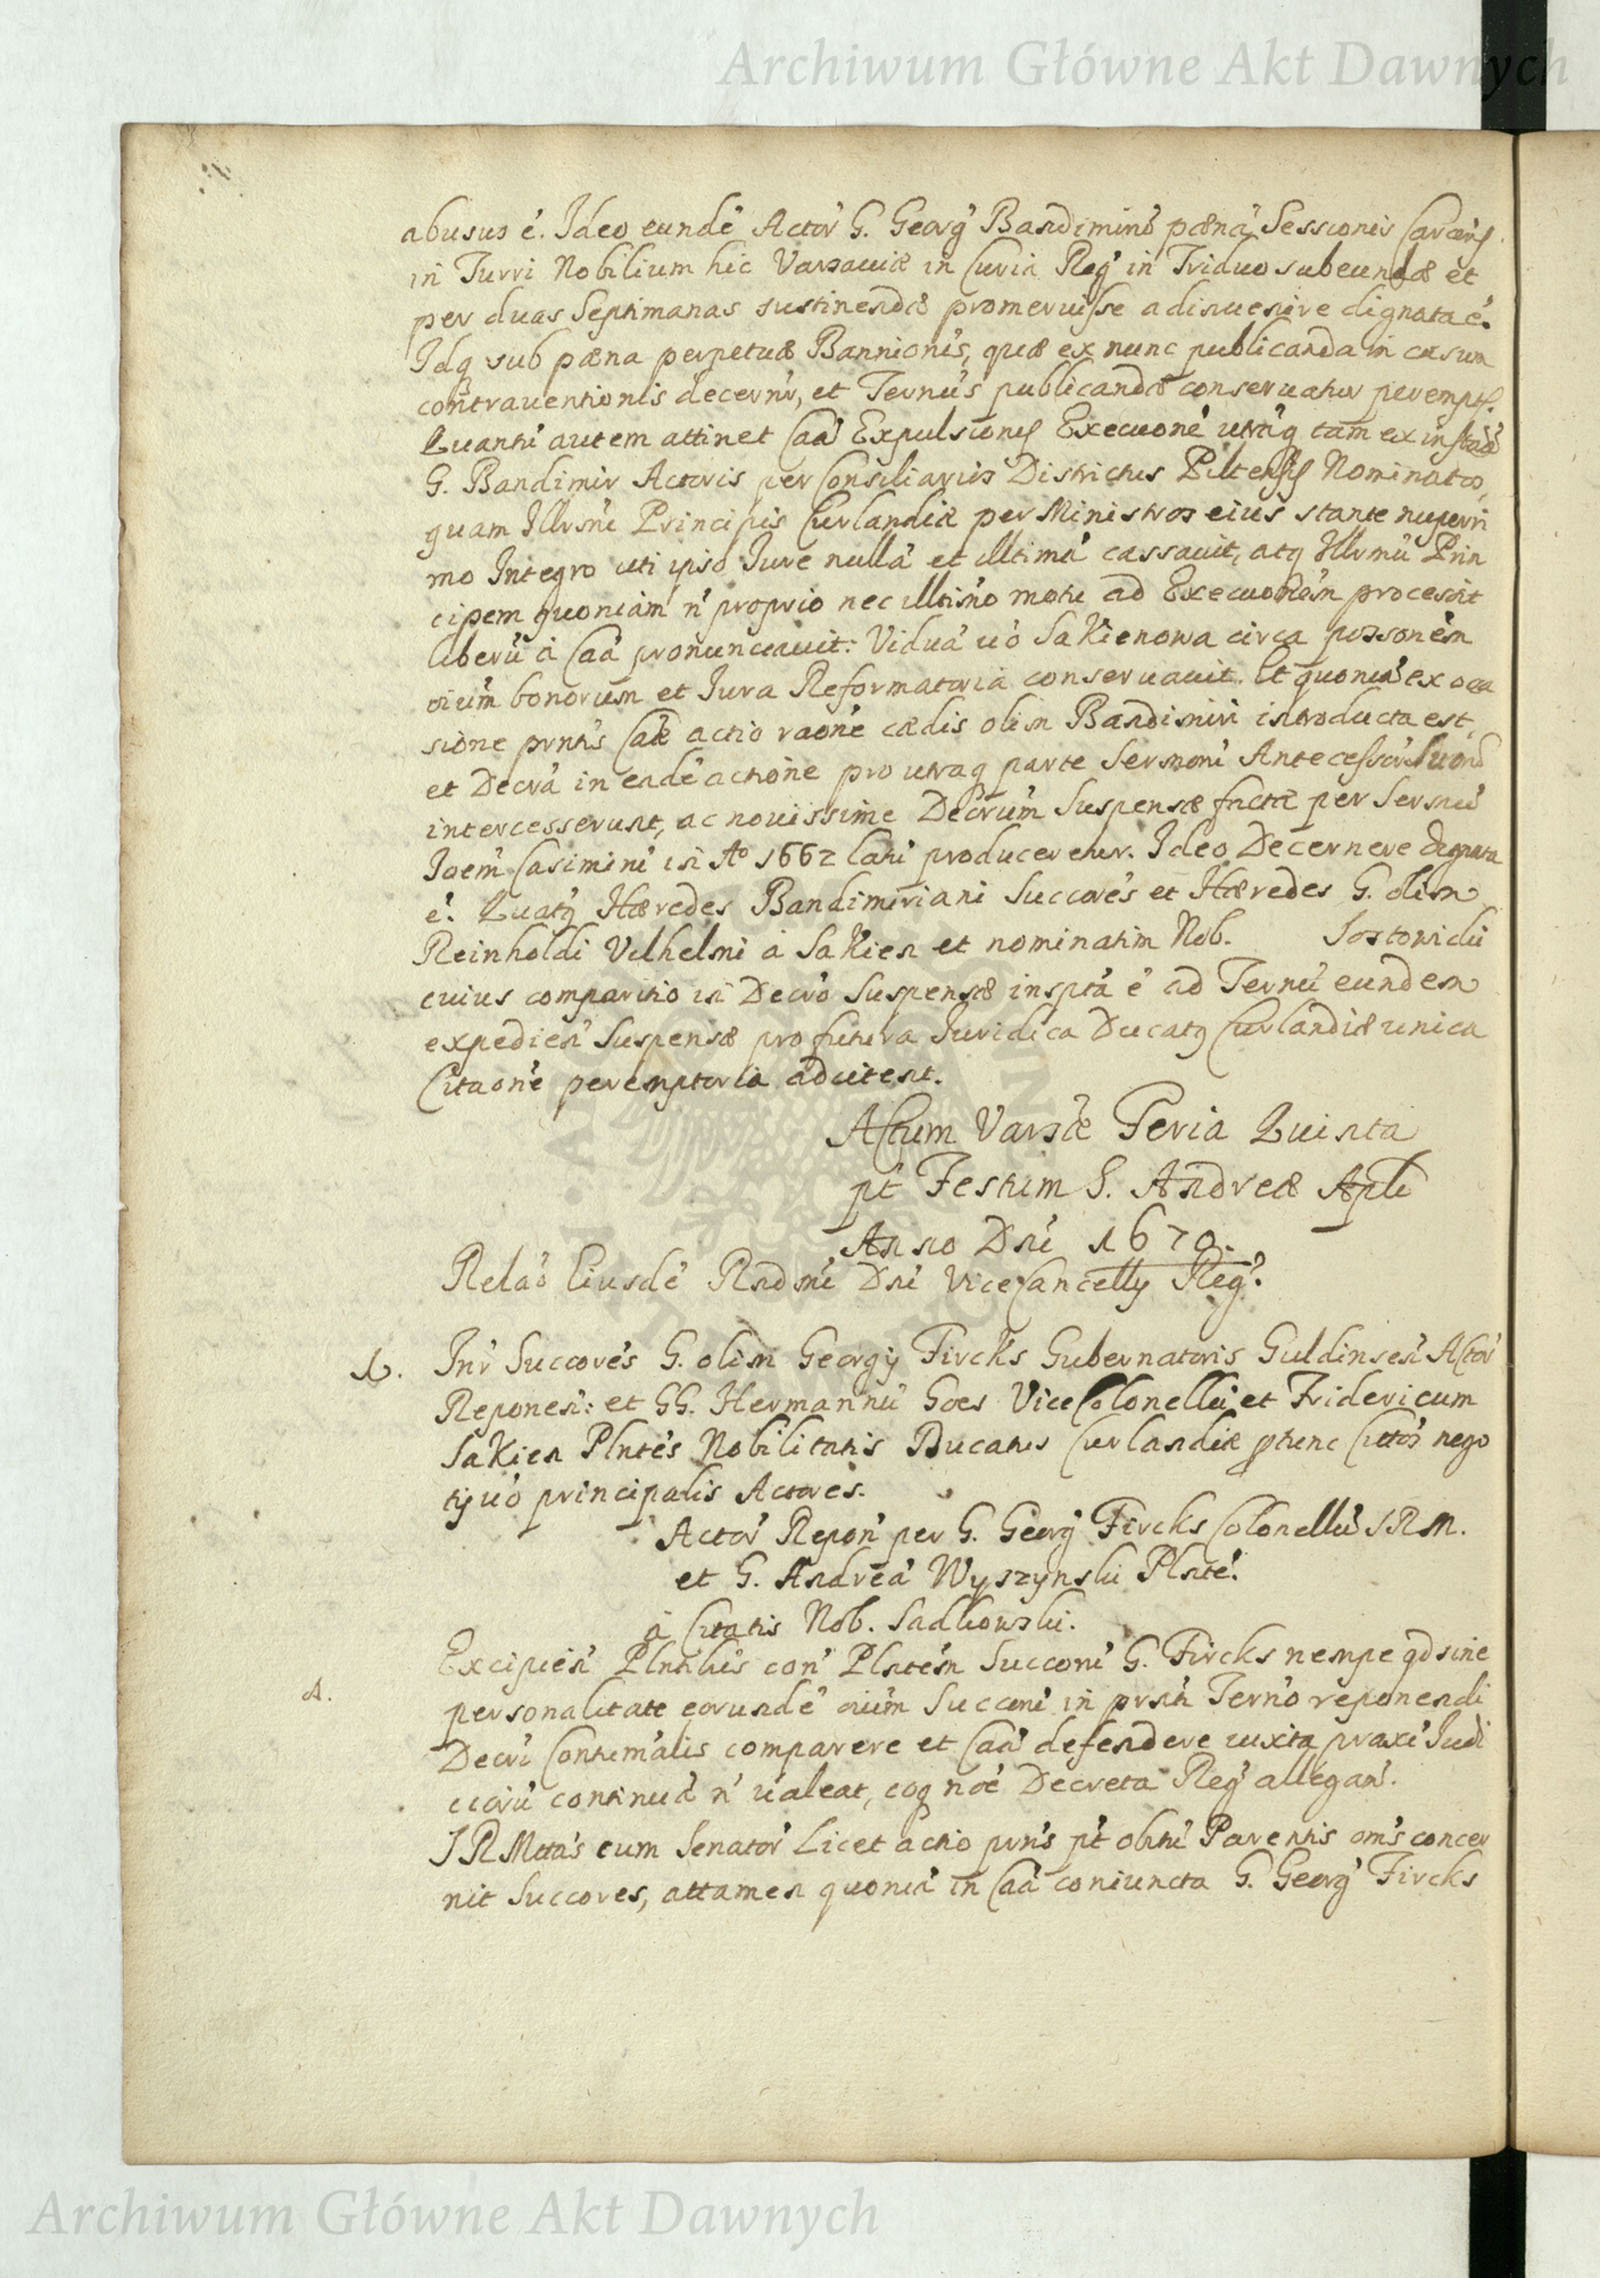 Archiwum Główne Akt Dawnych
abusus é. Ideo eundé Actor G. Georg Bandiminū pœnā Sessionis Carceris
in Turri Nobilium hic Varsaviæ in Curia Reg in Triduo subeundæ et
per duas Septimanas sustinendæ promeruisse adinuenire dignata é.
Idq sub pœna perpetuæ Bannionis, quæ ex nunc publicanda in casum
contrauentionis decernir, et Ternūs publicandæ conseruatur perempt.
Quantū autem attinet Caā Expulsionis Execuoné utrāq tam ex instaā
G. Bandimir Actoris per Consiliarios Districtus Piltensis Nominatos,
quam Illrsmi Principis Curlandiæ per Ministros eius stante nuperri
mo Integro uti ipso Iure nullā et illtimā cassauit, atq Illrmū Prin
cipem quoniam n̄ proprio nec illtimo motu ad Execuonem processit
liberū à Caā pronunciauit: Viduā uó Sakienowa circa possoném
oium bonorum et Iura Reformatoria conseruauit. Et quoniā ex occa
sione prntis Caæ actio raoné cædis olim Bandimiri introducta est,
et Decrā in eadé actione pro utraq parte Sermoni Antecessor Suond
intercesserunt, ac nouissime Decrūm Suspensæ factæ per Sernū
Ioem Casimirū in Ao 1662 lati produceretur. Ideo Decernere dignata
é. Quatq Hæredes Bandimiriani Succorés et Hæredes G. olim
Reinholdi Vilhelmi à Sakien et nominatim Nob. Jostowicki
cuius comparitio in Decró Suspensæ insptā é ad Ternū eundem
expedien Suspensæ pro futura Iuridica Ducatq Curlandiæ unica
Citaoné peremptoria adcitent.
Actum Varsæ Feria Quinta
pt Festum S. Andreæ Apli
Anno Dni 1670.
Relaó Eiusdé Rndmi Dni ViceCancelly Reg.
1. Inr Succorés G. olim Georgy Fircks Gubernatoris Guldinsen Actor
Reponen: et GG. Hermannū Goes ViceColonellū et Fridericum
Sakien Plntés Nobilitatis Ducatus Curlandiæ ptunc Cittos nego
ty uó principalis Actores.
Actor Repon per G. Georg Fircks Colonellū SRM.
et G. Andreā Wyszynski Plnté.
à Citatis Nob. Sadkowski.
Excipien Plntibūs con Plntém Succorū G. Fircks nempe qd sine
A. personalitate eorundé oium Succorū in prsn Terno reponendi
Decri Contumalis comparere et Caā defendere iuxta praxi Iudi
ciorū continuā n̄ ualeat, eoq noé Decreta Reg allegan.
SRMttas cum Senator Licet actio prns pt obitū Parentis oms concer
nit Succores, attamen quoniā in Caā coniuncta G. Georg Fircks
Archiwum Główne Akt Dawnych